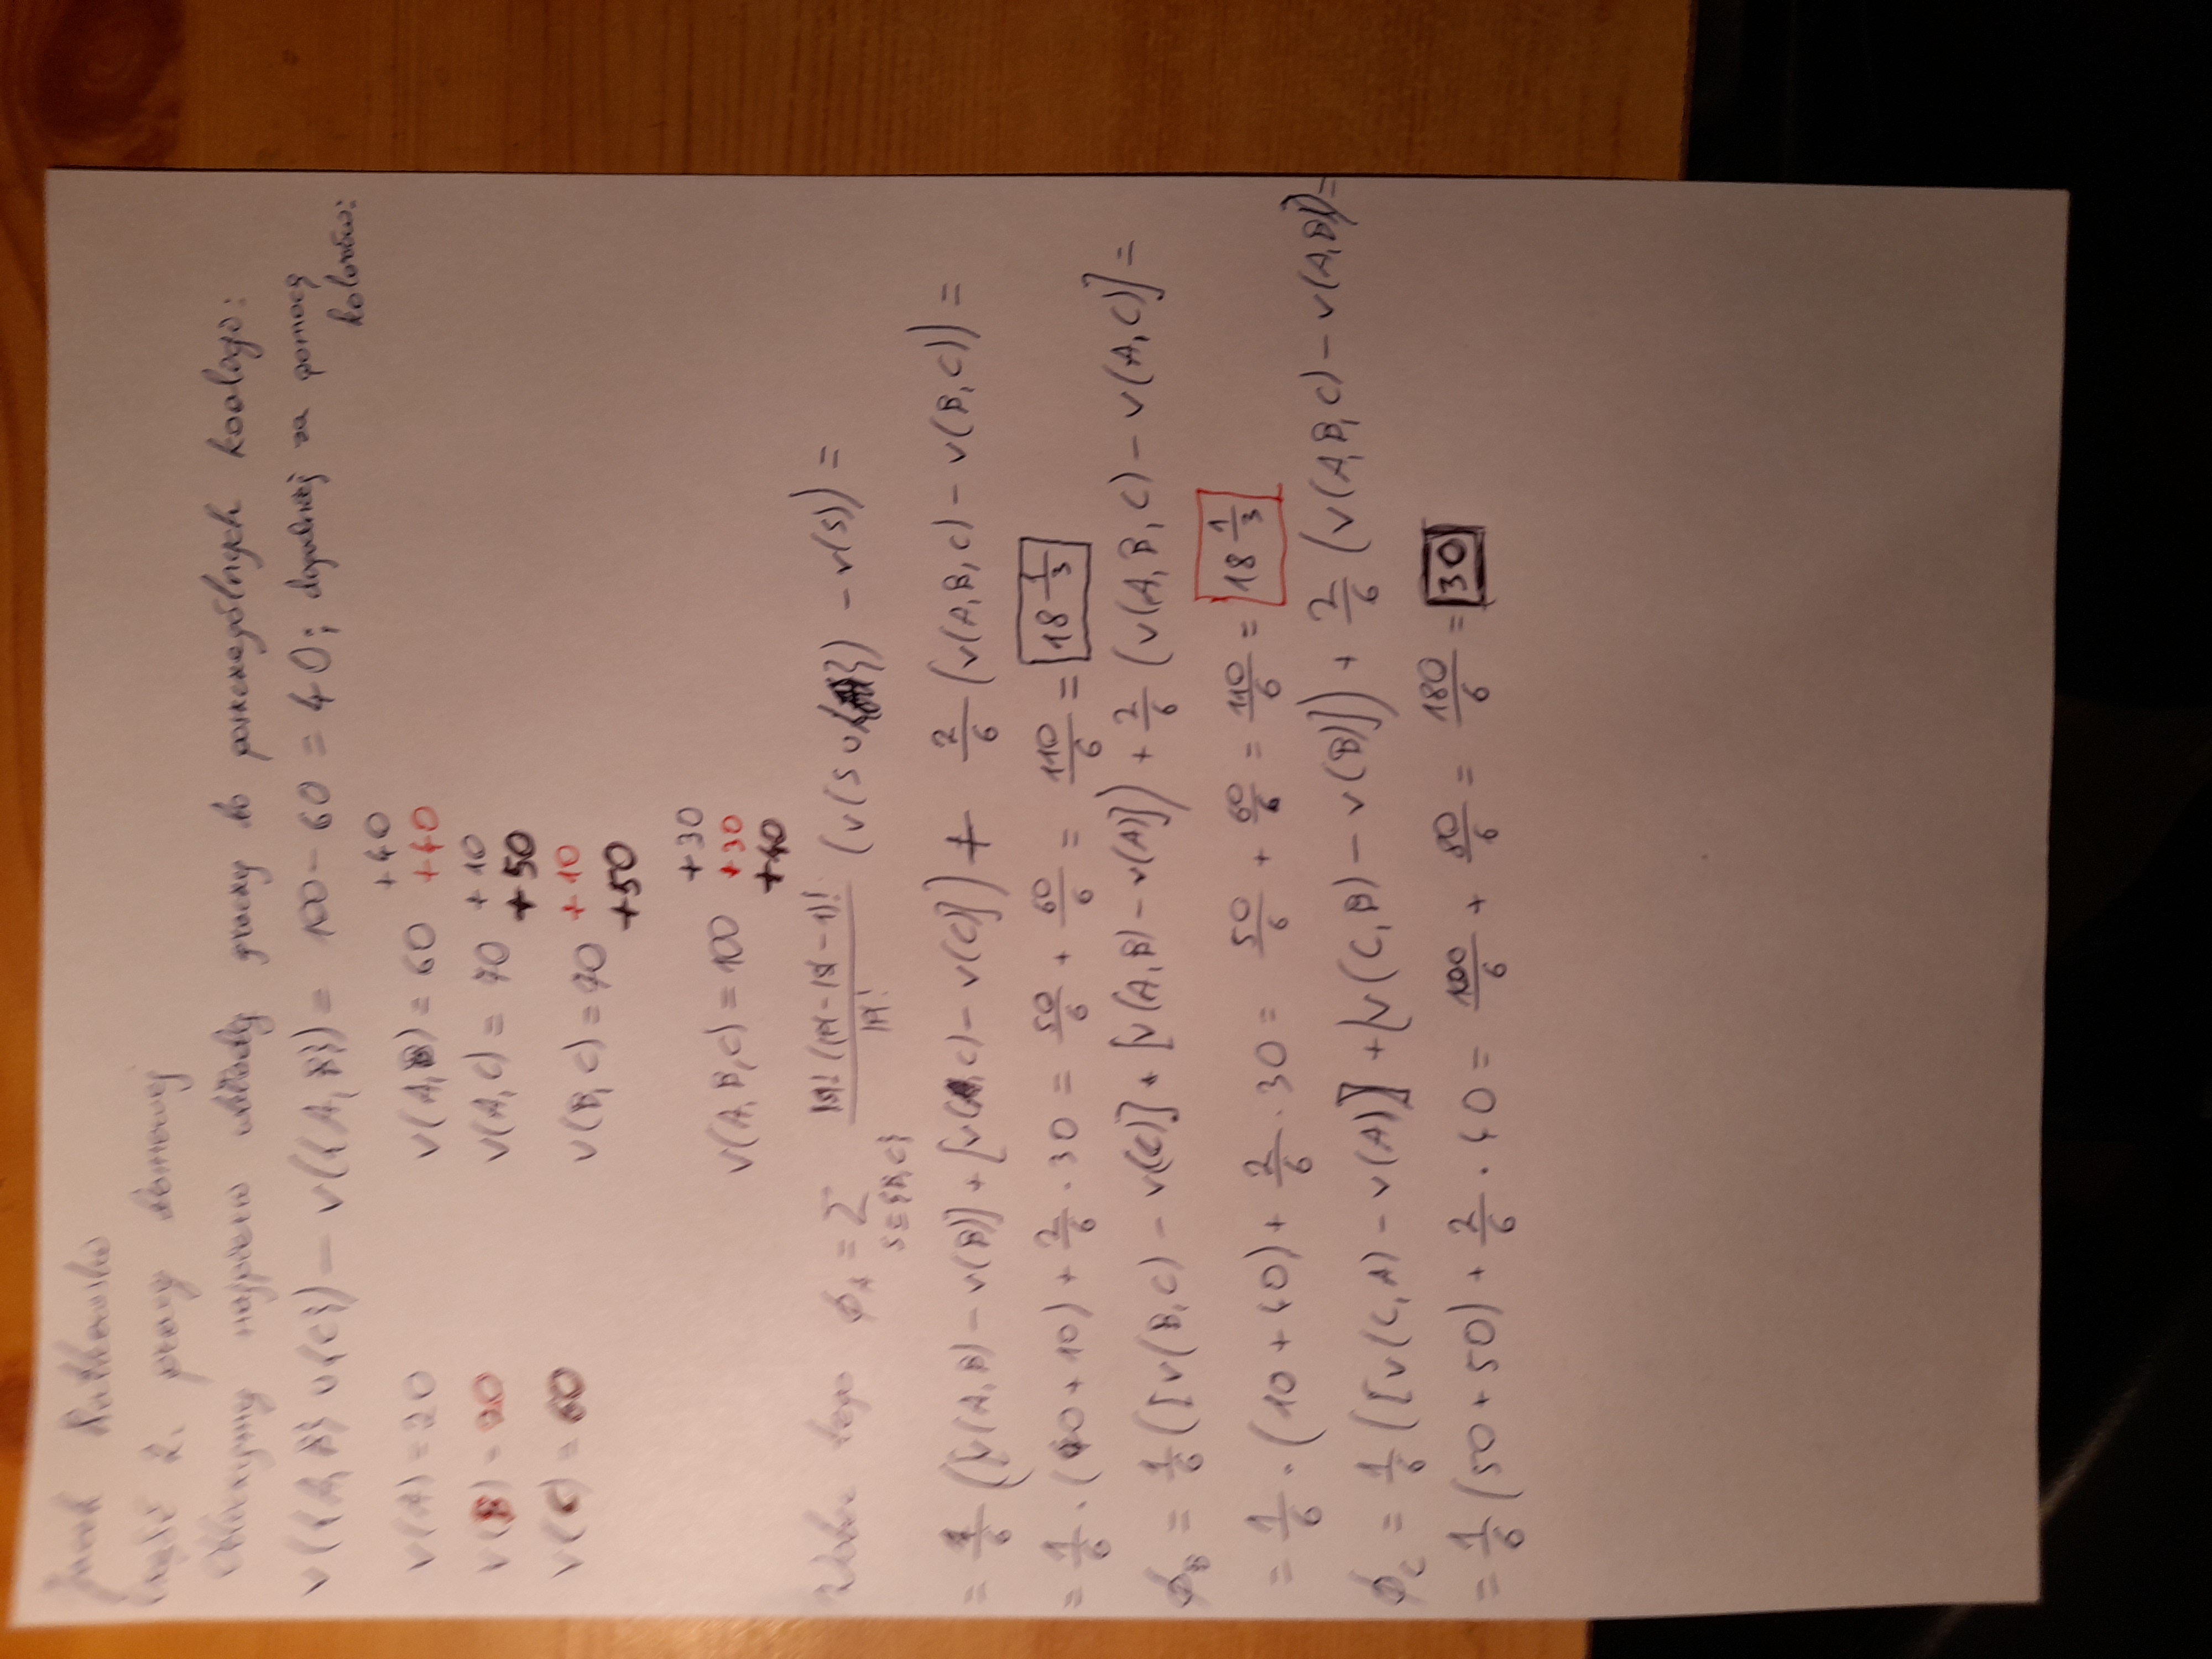 Jacek Rutkowski
Część 2. pracy domowej
Obliczymy najpierw wkłady graczy do poszczególnych koalicji:
v({A,B} ∪ {C}) − v({A,B}) = 100 − 60 = 40; dogodniej za pomocą
kolorów:
v(A) = 20 v(A,B) = 60 +40 +40
v(B) = 20 v(A,C) = 70 +10 +50
v(C) = 60 v(B,C) = 70 +10 +50
v(A,B,C) = 100 +30 +30 +40
Wobec tego ϕ_A = Σ_{S⊆{B,C}} |S|!(|A|−|S|−1)!/|A|! (v(S∪{A}) − v(S)) =
= 1/6 ([v(A,B) − v(B)] + [v(A,C) − v(C)]) + 2/6 (v(A,B,C) − v(B,C)) =
= 1/6 · (40 + 10) + 2/6 · 30 = 50/6 + 60/6 = 110/6 = 18 1/3
ϕ_B = 1/6 ([v(B,C) − v(C)] + [v(A,B) − v(A)]) + 2/6 (v(A,B,C) − v(A,C)] =
= 1/6 · (10 + 40) + 2/6 · 30 = 50/6 + 60/6 = 110/6 = 18 1/3
ϕ_C = 1/6 ([v(C,A) − v(A)] + [v(C,B) − v(B)]) + 2/6 (v(A,B,C) − v(A,B)) =
= 1/6 (50 + 50) + 2/6 · 40 = 100/6 + 80/6 = 180/6 = 30